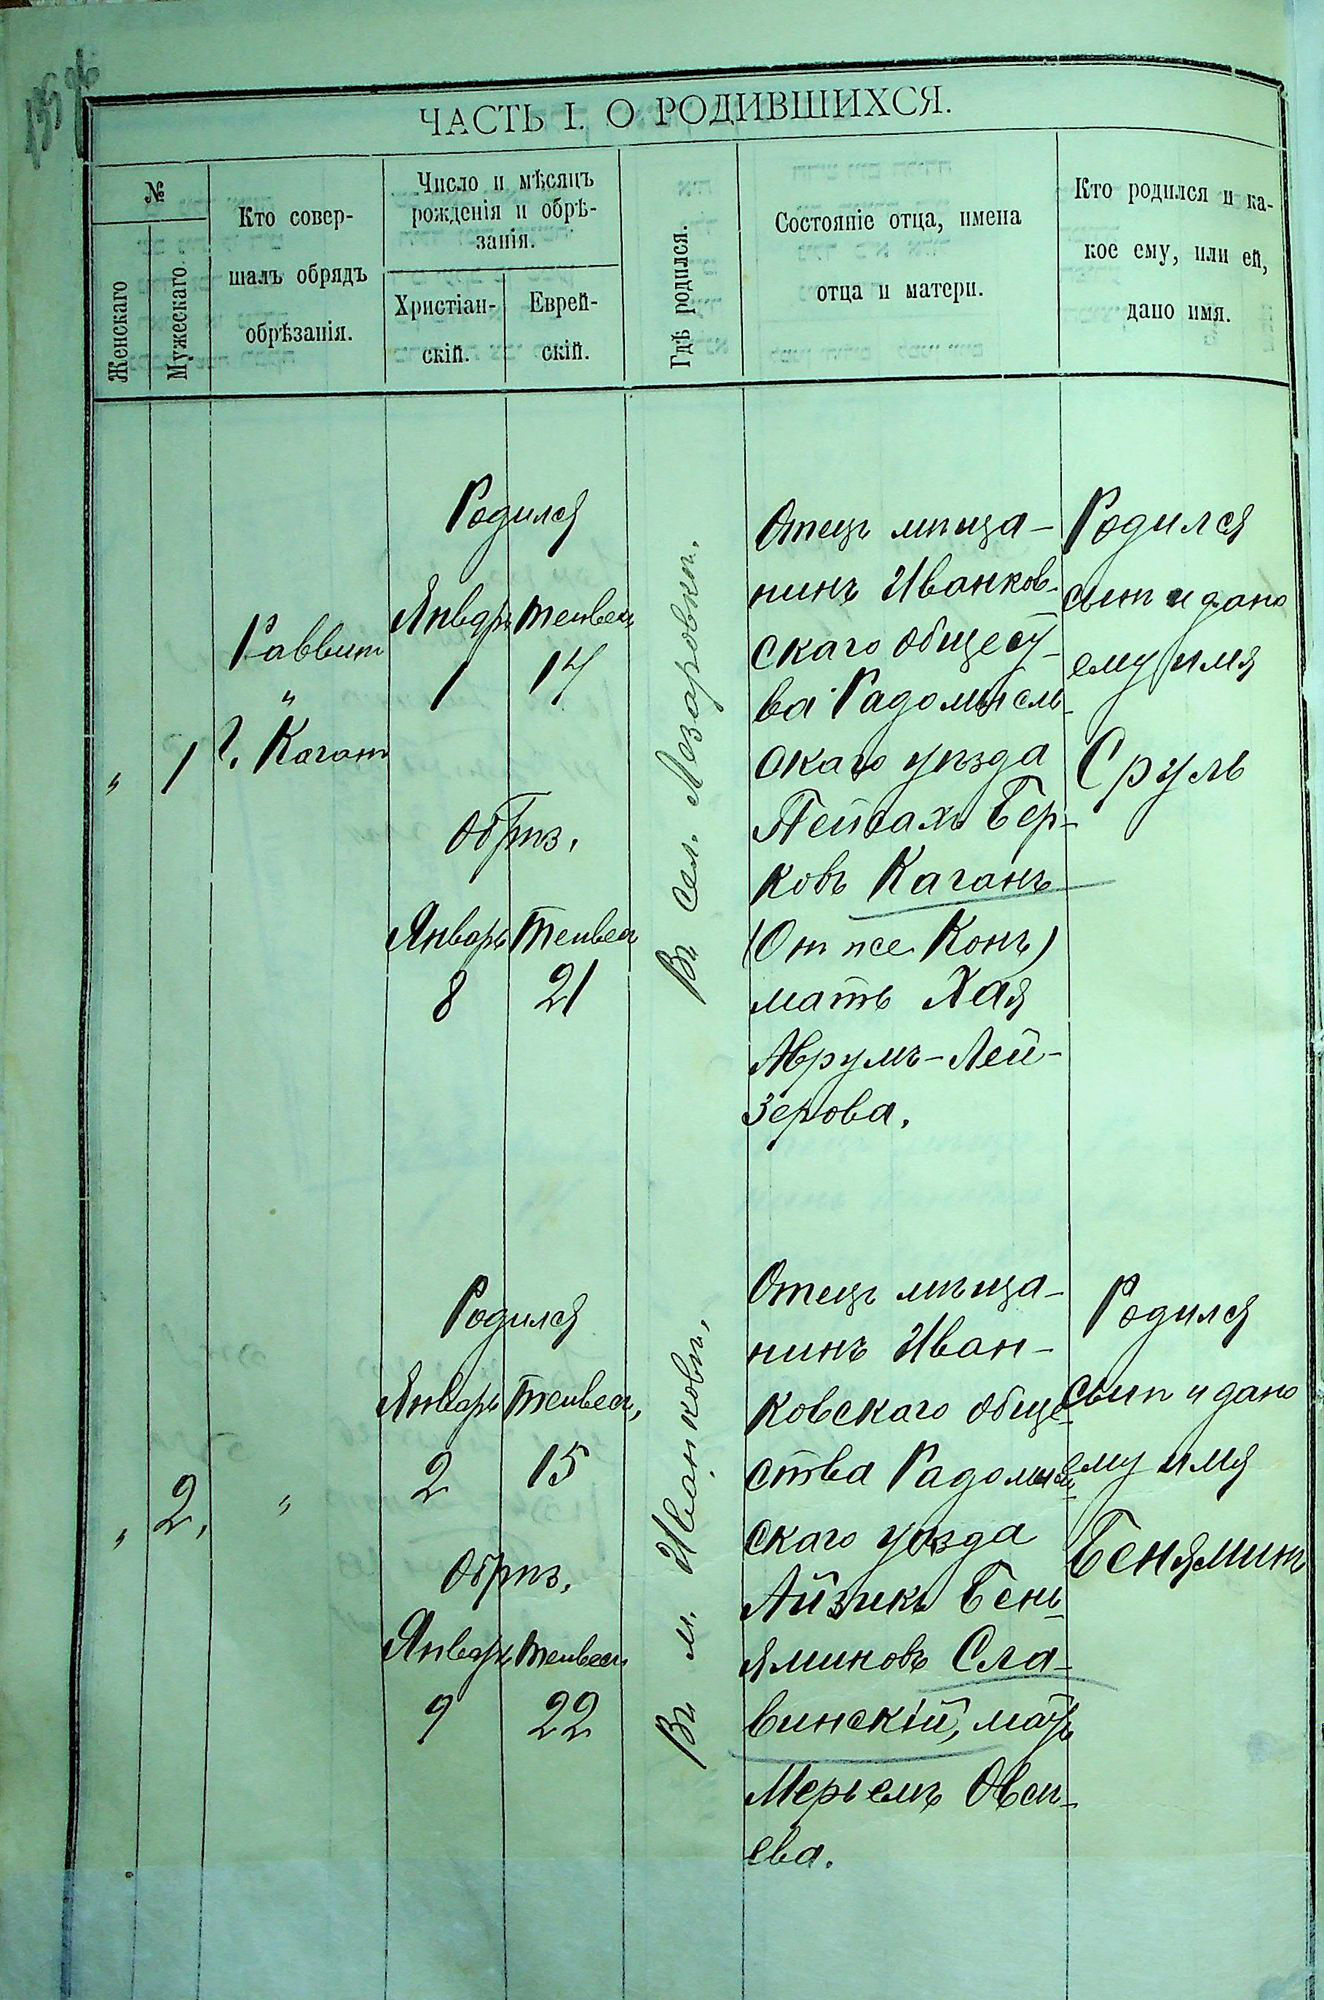 ЧАСТЬ I. О РОДИВШИХСЯ.
№
Женскаго
Мужескаго.
Кто совер-
шалъ обрядъ
обрѣзанія.
Число и мѣсяцъ
рожденія и обрѣ-
занія.
Христіан-
скій.
Еврей-
скій.
Гдѣ родился.
Состояніе отца, имена
отца и матери.
Кто родился и ка-
кое ему, или ей,
дано имя.
„
1
Раввин
„
Г. Каган
Родился
Январь Тейвес
1 14
Обрѣз.
Январь Тейвес
8 21
Въ сел. Лазаровки.
Отецъ мѣща-
нинъ Иванков-
скаго общест-
ва Радомысль-
скаго уѣзда
Пейсахъ Бер-
ковъ Каганъ
(Он же Конъ)
мать Хая
Аврумъ-Лей-
зерова.
Родился
сын и дано
ему имя
Сруль
„
2,
„
Родился
Январь Тейвес,
2 15
Обрѣз.
Январь Тейвес
9 22
Въ м. Иванковѣ,
Отецъ мѣща-
нинъ Иван-
ковскаго обще-
ства Радомысль-
скаго уѣзда
Айзикъ Бень-
яминовъ Сла-
винскій, мать
Мерьемъ Овсѣ-
ева.
Родился
сын и дано
ему имя
Бенямин